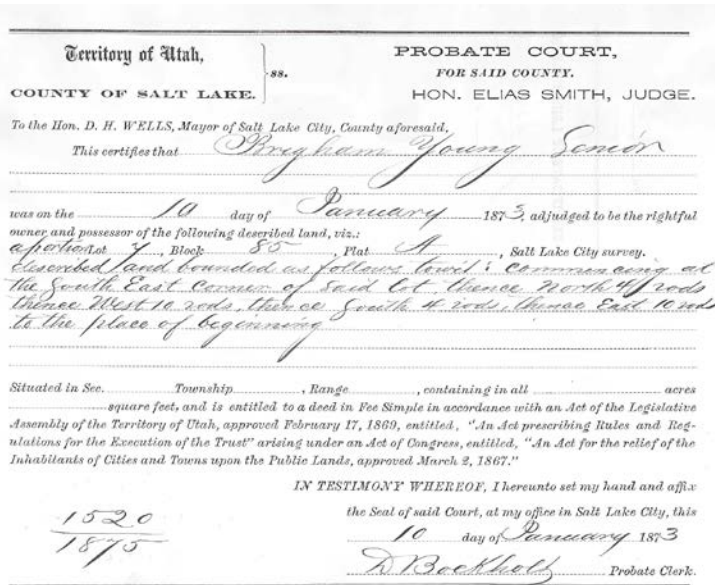 Territory of Utah,
COUNTY OF SALT LAKE.
ss.
PROBATE COURT,
FOR SAID COUNTY.
HON. ELIAS SMITH, JUDGE.
To the Hon. D. H. WELLS, Mayor of Salt Lake City, County aforesaid,
This certifies that Brigham Young Senior
was on the 10 day of January 1873, adjudged to be the rightful
owner and possessor of the following described land, viz.:
a portion Lot 7, Block 85, Plat A, Salt Lake City survey.
described and bounded as follows towit: commencing at
the South East Corner of said lot, thence North 4 rods
thence West 10 rods, thence South 4 rods, thence East 10 rods
to the place of beginning
Situated in Sec. Township, Range, containing in all acres
square feet, and is entitled to a deed in Fee Simple in accordance with an Act of the Legislative
Assembly of the Territory of Utah, approved February 17, 1869, entitled, "An Act prescribing Rules and Reg-
ulations for the Execution of the Trust" arising under an Act of Congress, entitled, "An Act for the relief of the
Inhabitants of Cities and Towns upon the Public Lands, approved March 2, 1867."
IN TESTIMONY WHEREOF, I hereunto set my hand and affix
the Seal of said Court, at my office in Salt Lake City, this
10 day of January 1873
D Bockholt Probate Clerk.
1520
1875